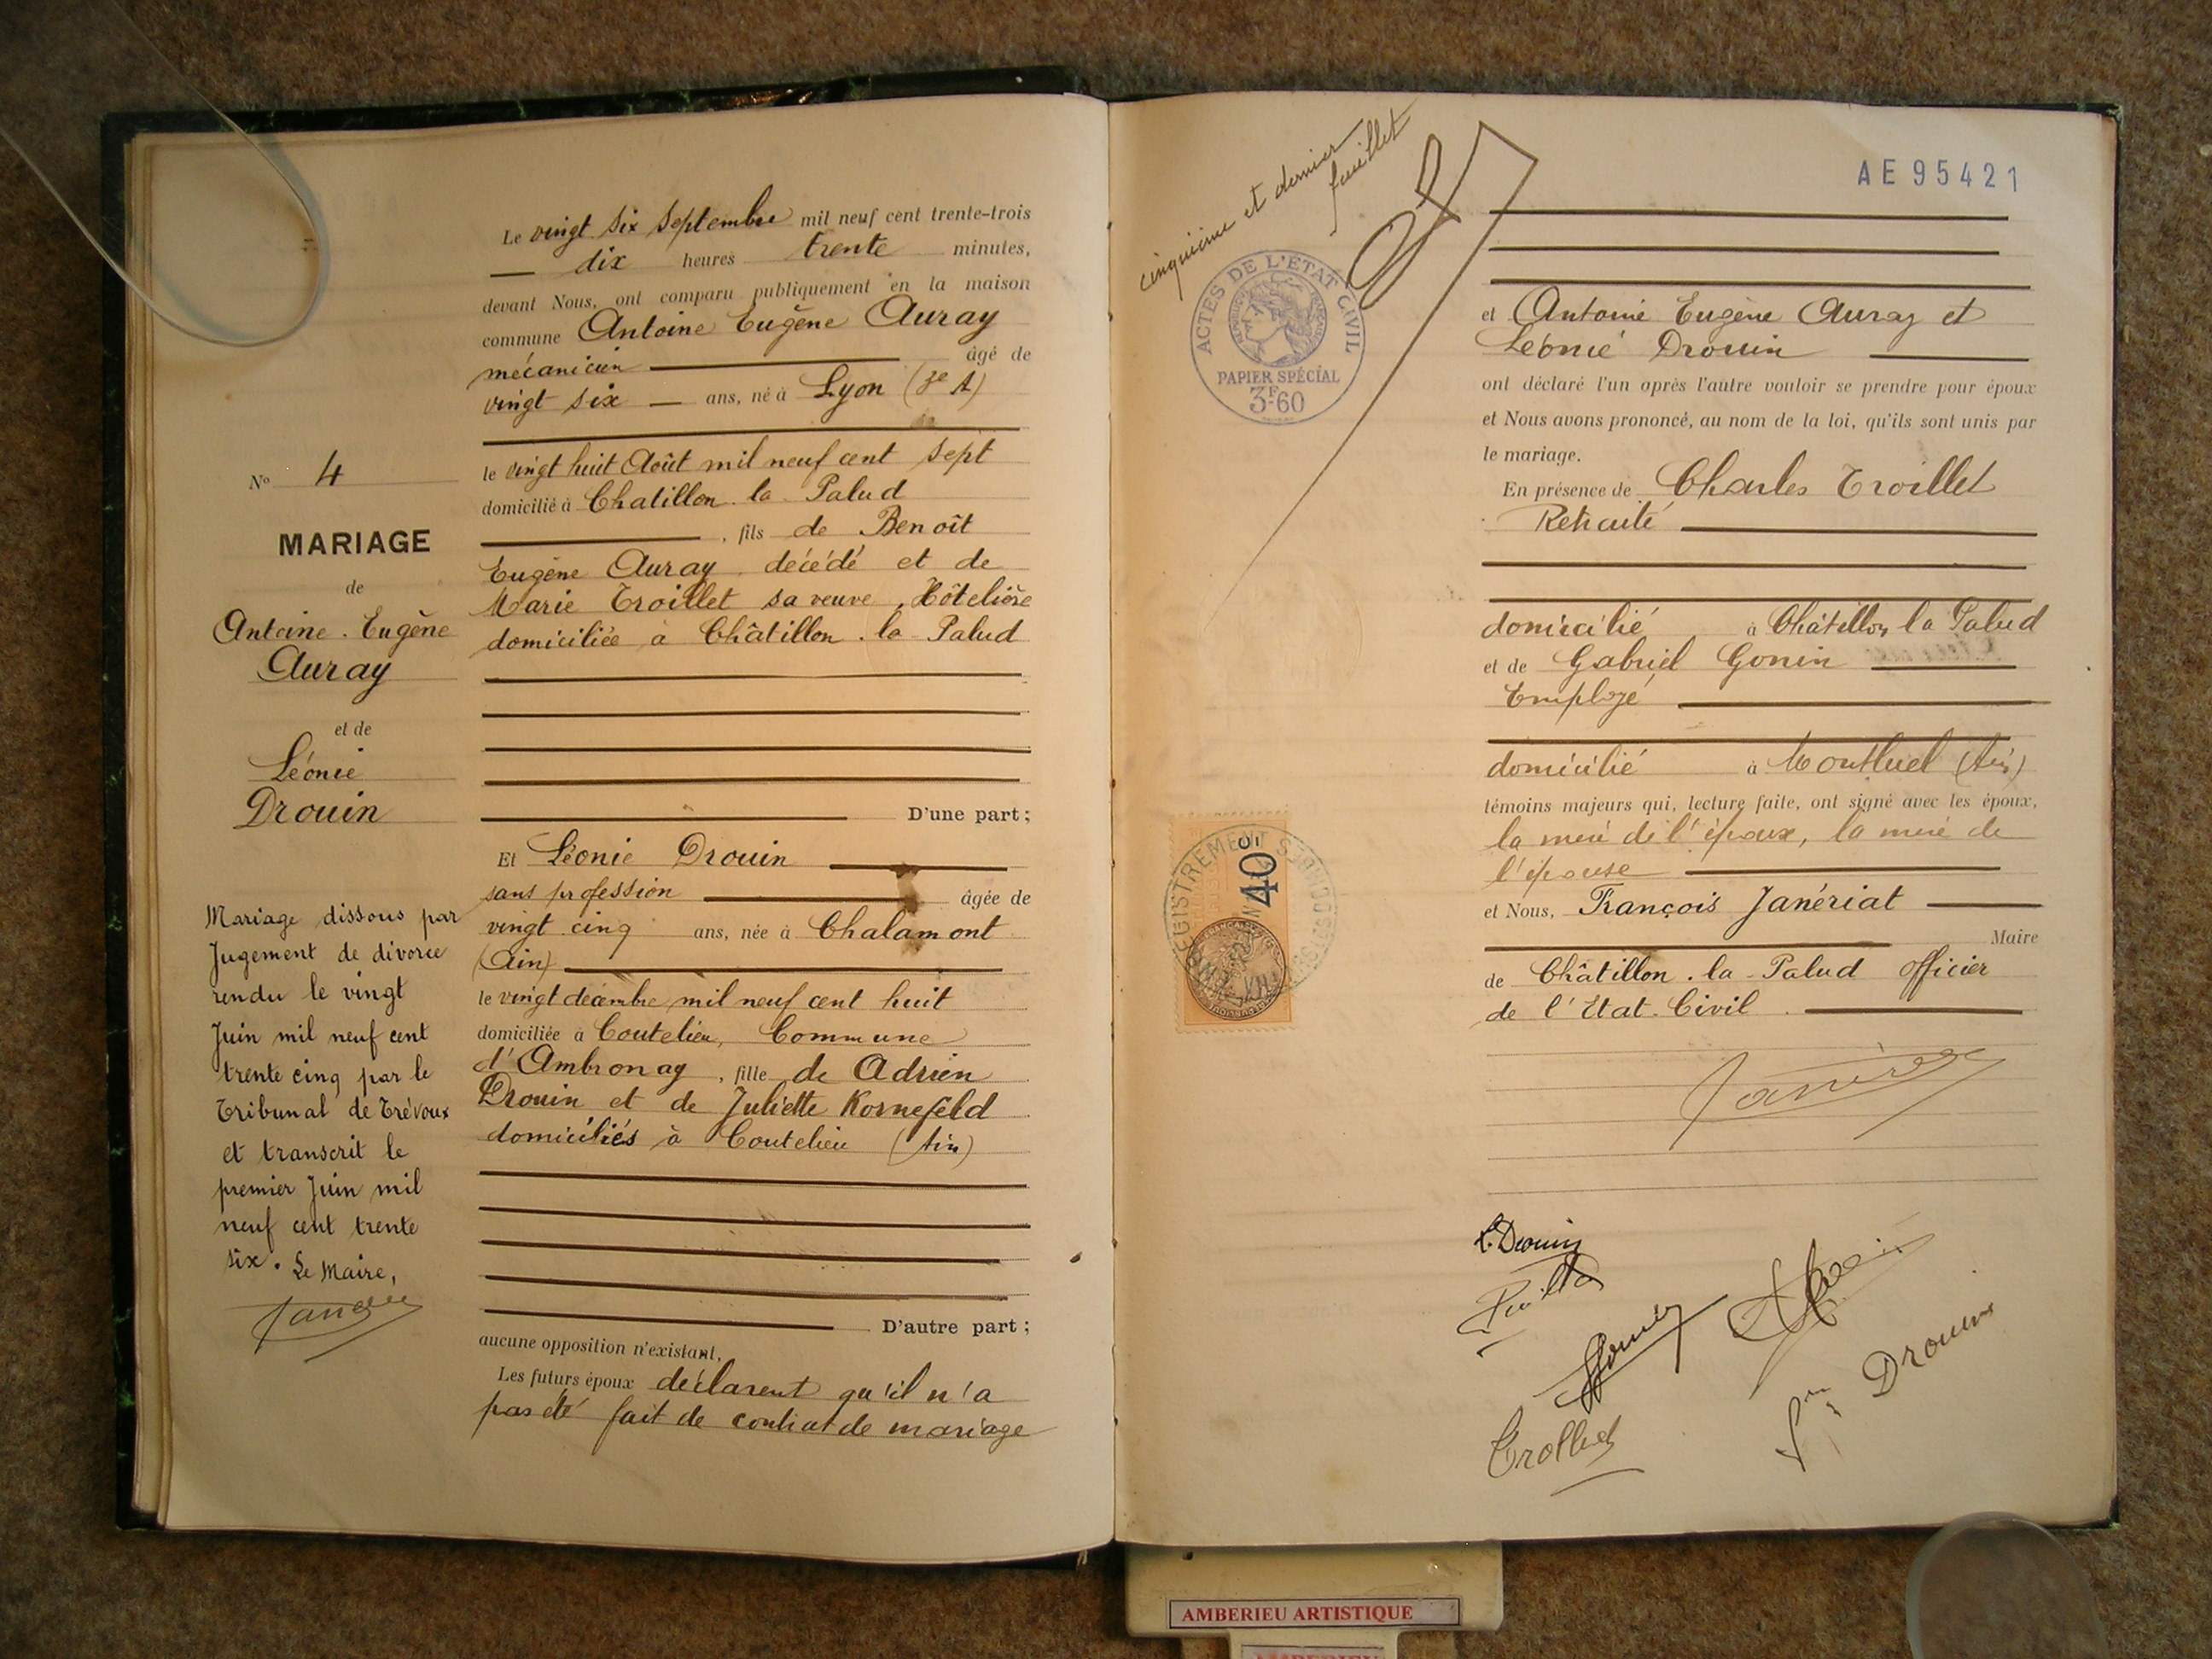 Le vingt six Septembre mil neuf cent trente-trois
dix heures trente minutes,
devant Nous, ont comparu publiquement en la maison
commune Antoine Eugène Auray
mécanicien âgé de
vingt six ans, né à Lyon (3e A)
le vingt huit Août mil neuf cent sept
domicilié à Chatillon la Palud
, fils de Benoît
Eugène Auray, décédé et de
Marie Troillet sa veuve, Hôtelière
domiciliée à Châtillon la Palud
D'une part;
Et Léonie Drouin
sans profession âgée de
vingt cinq ans, née à Chalamont
(Ain)
le vingt décembre mil neuf cent huit
domiciliée à Coutelieu, Commune
d'Ambronay, fille de Adrien
Drouin et de Juliette Kornefeld
domiciliés à Coutelieu (Ain)
D'autre part;
aucune opposition n'existant,
Les futurs époux déclarent qu'il n'a
pas été fait de contrat de mariage
No 4
MARIAGE
de
Antoine Eugène
Auray
et de
Léonie
Drouin
Mariage dissous par
Jugement de divorce
rendu le vingt
Juin mil neuf cent
trente cinq par le
Tribunal de Trévoux
et transcrit le
premier Juin mil
neuf cent trente
six. Le Maire,
cinquième et dernier
feuillet
ACTES DE L'ETAT CIVIL
PAPIER SPÉCIAL
3F-60
40c
AE95421
et Antoine Eugène Auray et
Léonie Drouin
ont déclaré l'un après l'autre vouloir se prendre pour époux
et Nous avons prononcé, au nom de la loi, qu'ils sont unis par
le mariage.
En présence de Charles Troillet
Retraité
domicilié à Châtillon la Palud
et de Gabriel Gonin
Employé
domicilié à Montluel (Ain)
témoins majeurs qui, lecture faite, ont signé avec les époux,
la mère de l'époux, la mère de
l'épouse
et Nous, François Janériat
Maire
de Châtillon la Palud officier
de l'Etat Civil
L. Drouin
Drouin
AMBERIEU ARTISTIQUE